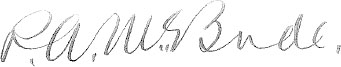 R. A. McBride.